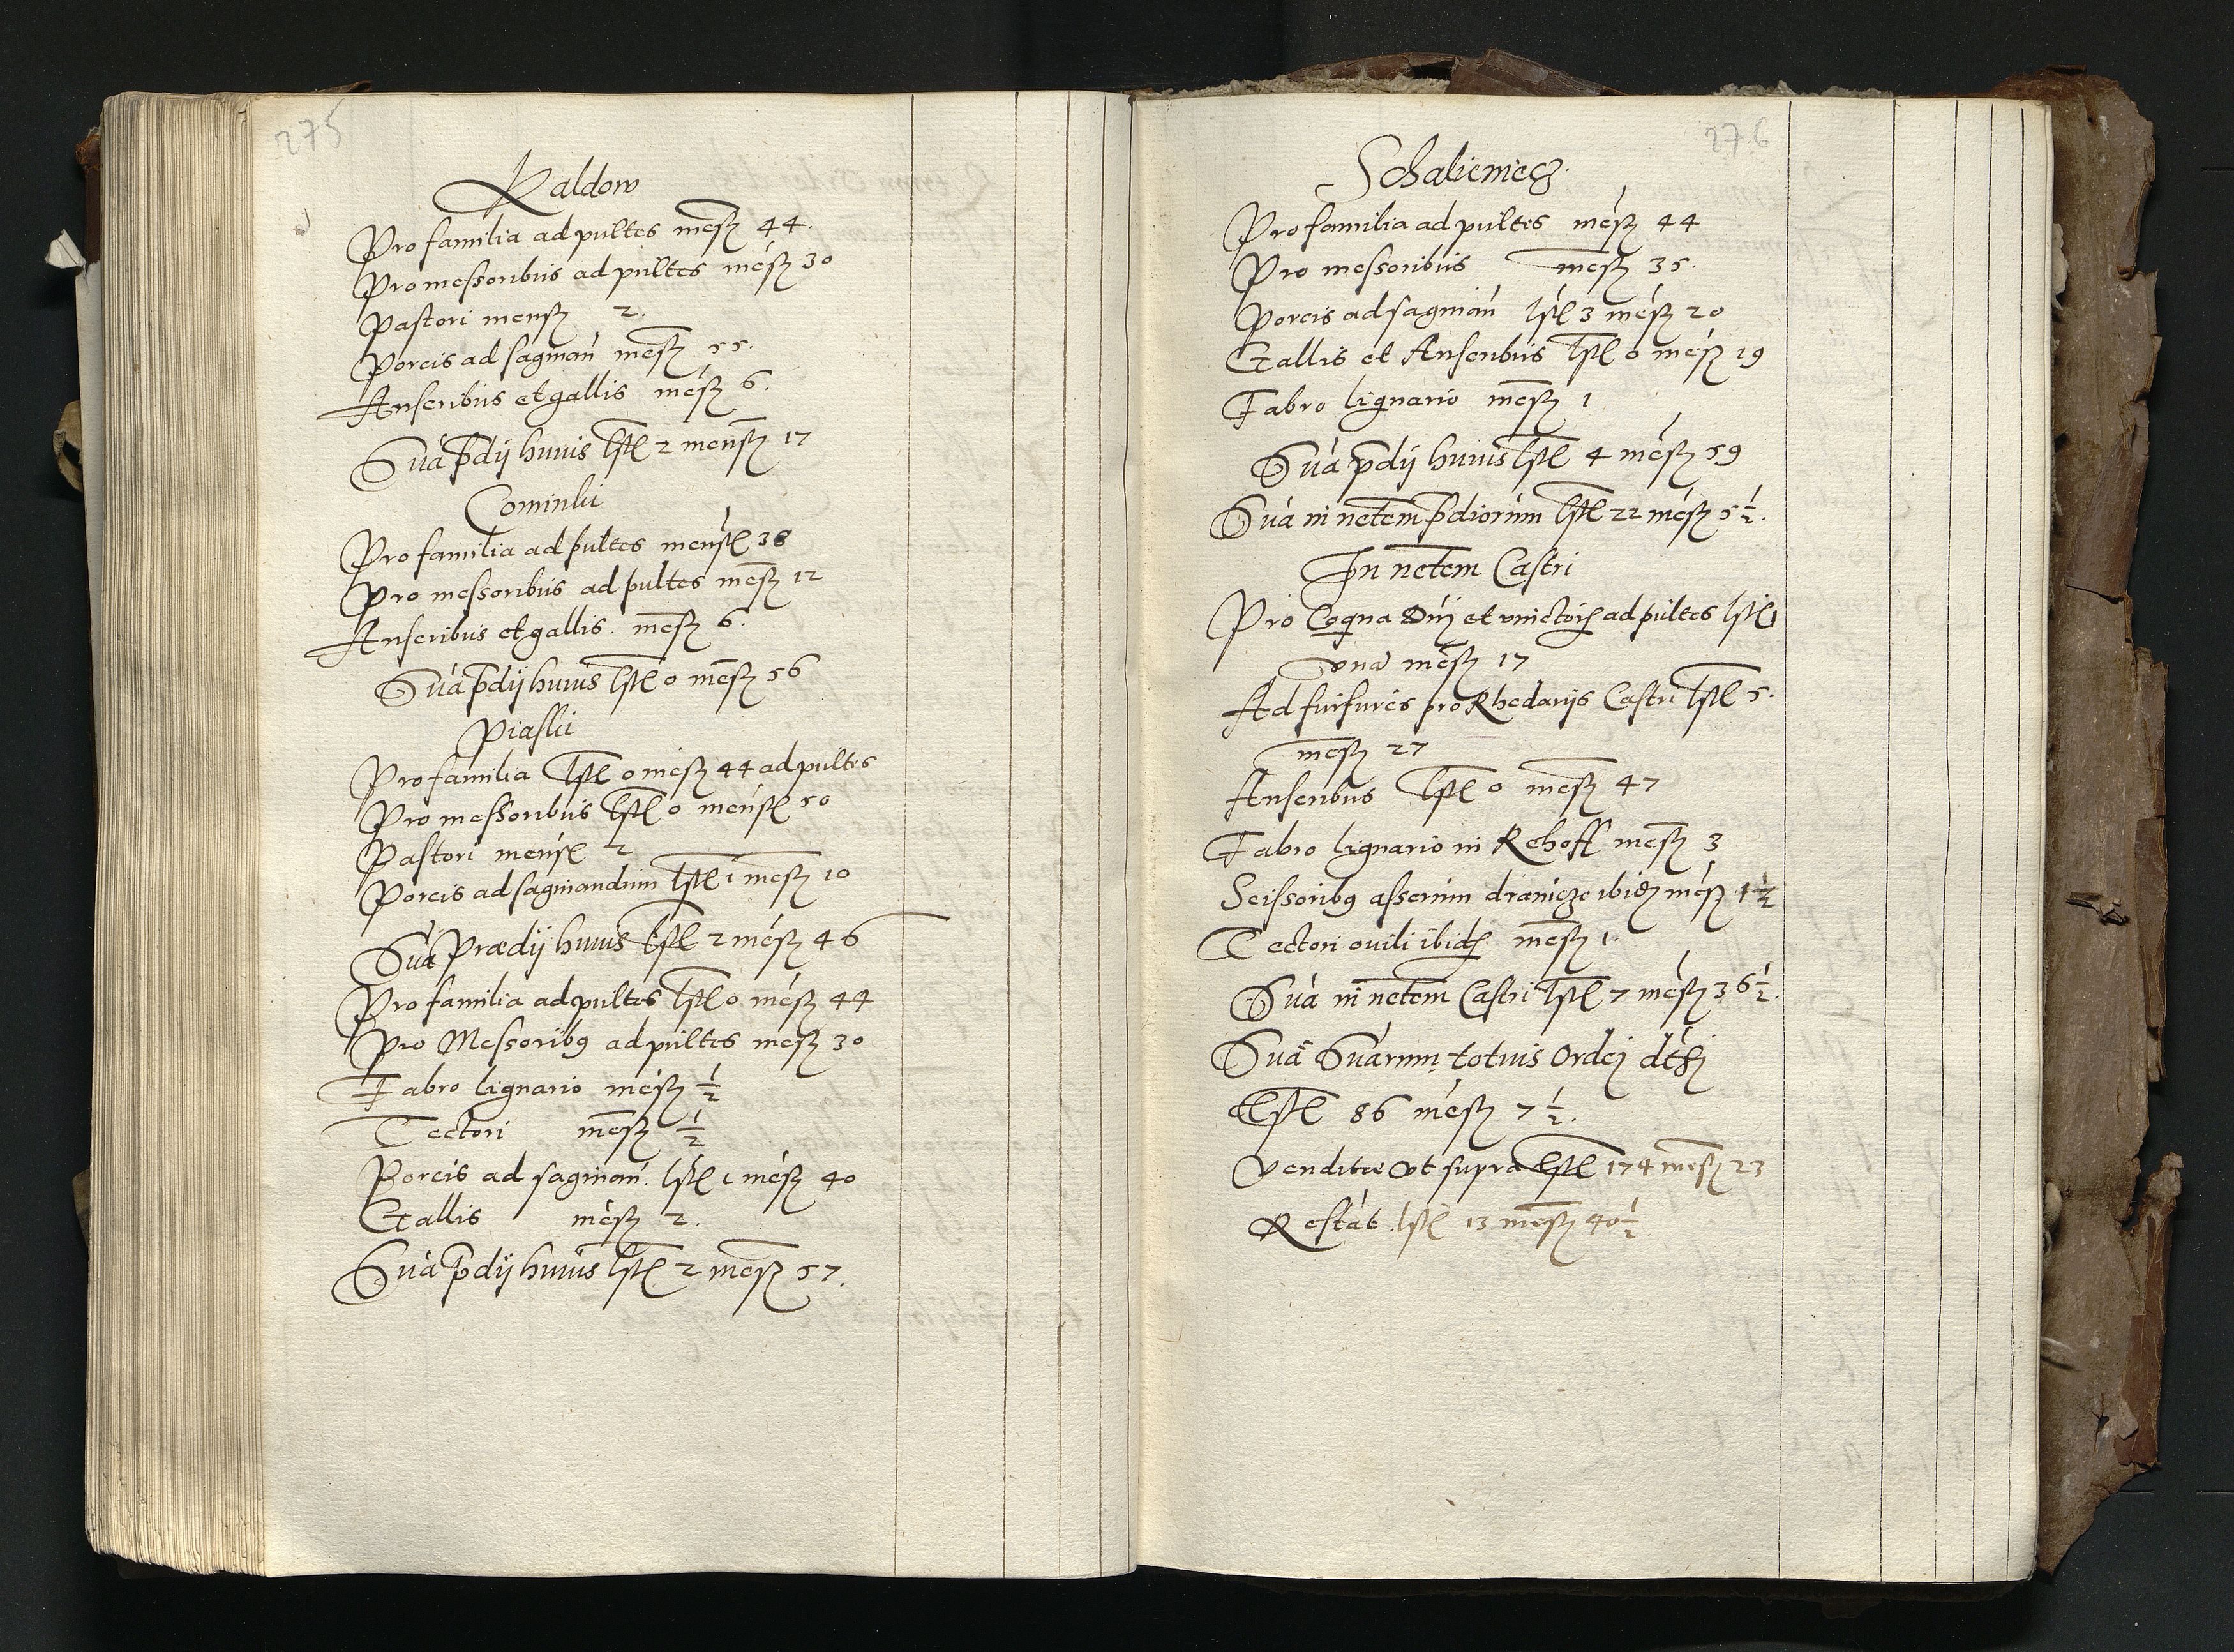 275
Kaldow
Pro familia ad pultes mens̄ 44.
Pro messoribus ad pultes mens̄ 30
Pastori mens̄ 2.
Porcis ad saginan̄ mens̄ 55.
Anseribus et gallis mens̄ 6.
Sūa p̄dij huius lst̄ 2 mens̄ 17
Cominki
Pro familia ad pultes mens̄ 38
Pro messoribus ad pultes mens̄ 12
Anseribus et gallis. mens̄ 6.
Sūa p̄dij huius lst̄ 0 mens̄ 56
Piaski
Pro familia lst̄ 0 mens̄ 44 ad pultes
Pro messoribus lst̄ 0 mens̄ 50
Pastori mens̄ 2
Porcis ad saginandum lst̄ 1 mens̄ 10
Sūa Prædij huius lst̄ 2 mens̄ 46
Pro familia ad pultes lst̄ 0 mens̄ 44
Pro Messoribꝰ ad pultes mens̄ 30
Fabro lignario mens̄ ½
Tectori mens̄ ½
Porcis ad saginan̄. lst̄ 1 mens̄ 40
Gallis mens̄ 2.
Sūa p̄dij huius lst̄ 2 mens̄ 57.
276
Schaliemecz.
Pro familia ad pultes mens̄ 44
Pro messoribus mens̄ 35.
Porcis ad saginan̄ lst̄ 3 mens̄ 20
Gallis et Anseribus lst̄ 0 mens̄ 19
Fabro lignario mens̄ 1
Sūa p̄dij huius lst̄ 4 mens̄ 59
Sūa in nc̄tem p̄diorum lst̄ 22 mens̄ 5½.
In nc̄tem Castri
Pro Coqna Dn̄j et vinctorꝭ ad pultes lst̄
vna mens̄ 17
Ad furfures pro Rhedarijs Castri lst̄ 5.
mens̄ 27
Anseribus lst̄ 0 mens̄ 47
Fabro lignario in Rehoff mens̄ 3
Scissoribꝰ asserum dranicze ibid̄ mens̄ 1½
Tectori ouili ibid̄. mens̄ 1.
Sūa in nc̄tem Castri lst̄ 7 mens̄ 36½.
Sūa Sūarum totius Ordej
Lst̄ 86 mens̄ 7½.
Venditæ vt supra lst̄ 174 mens̄ 23
Restāt. lst̄ 13 mens̄ 40½